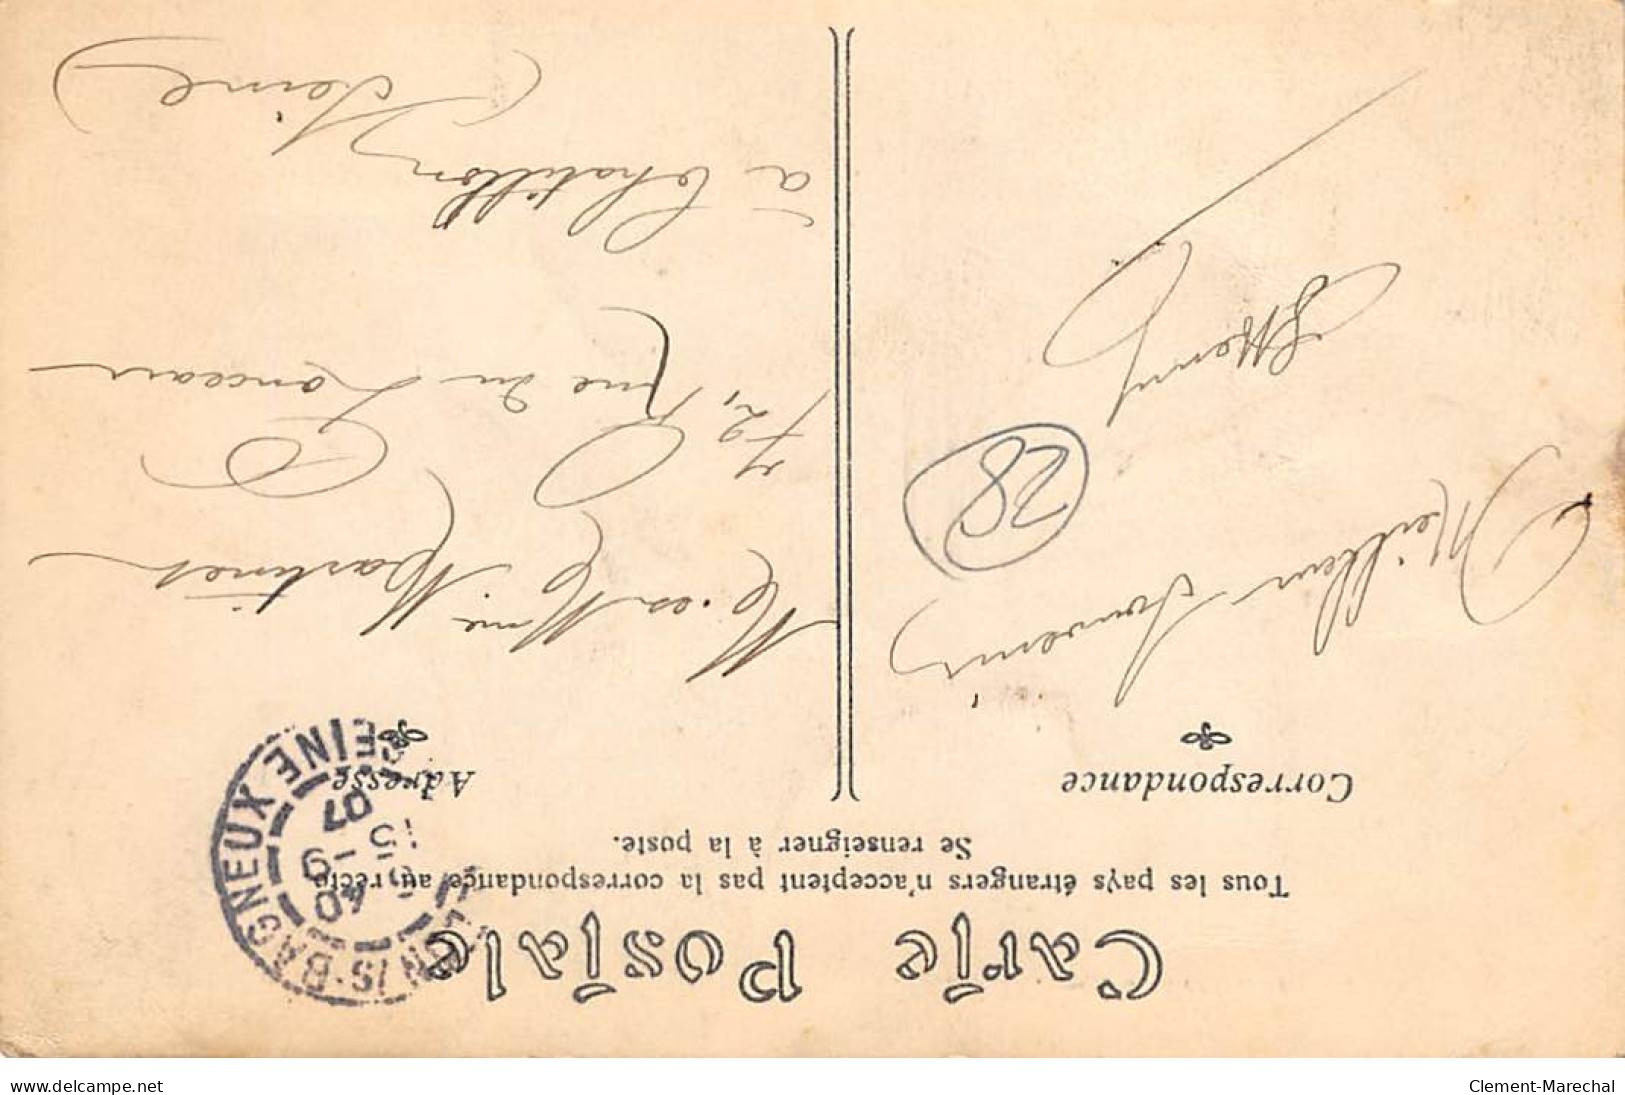 Carte Postale
Tous les pays étrangers n'acceptent pas la correspondance au recto
Se renseigner à la poste.
Correspondance
Adresse
Meilleur Souvenir
Henry
28
Mme Martinet
72, Rue du
à Chatillon
(Seine)
BAGNEUX SEINE
40
15 -9
07
www.delcampe.net
Clement-Marechal